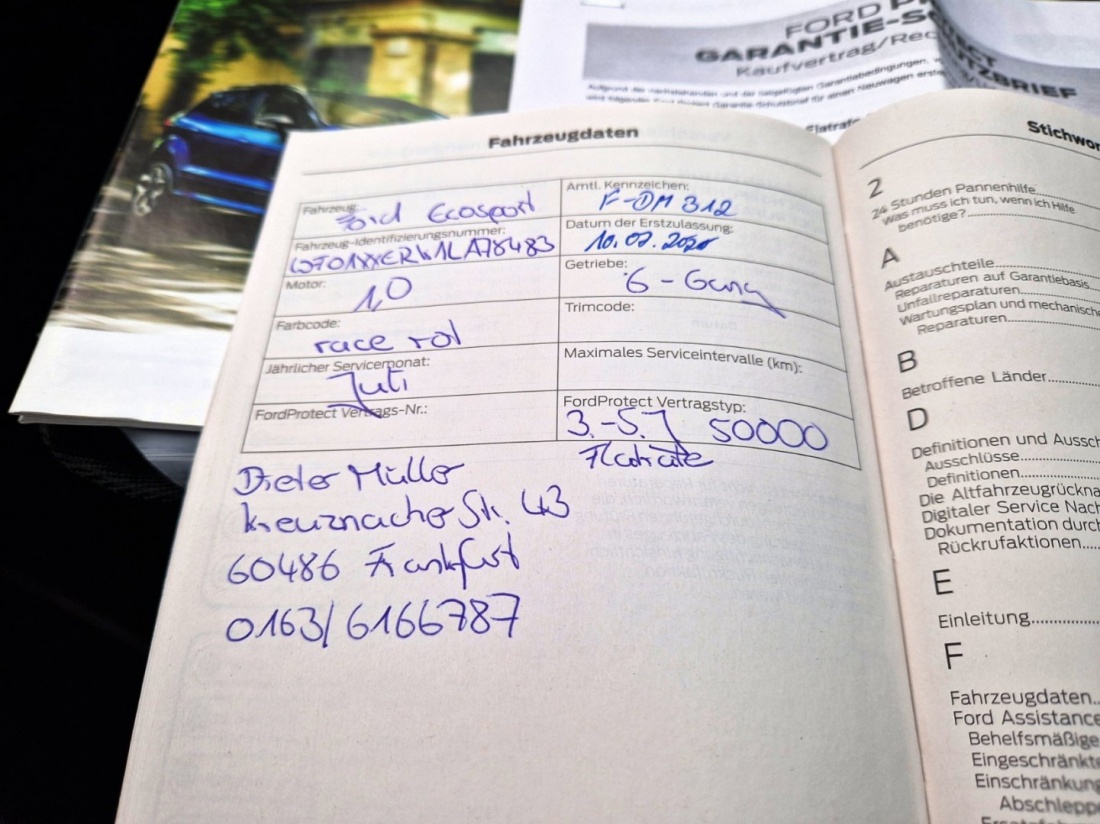 FORD
GARANTIE-S
Kaufvertrag/Rec
TZBRIEF
Fahrzeugdaten
Fahrzeug:
Ford Ecosport
Amtl. Kennzeichen:
F-DM 312
Fahrzeug-Identifizierungsnummer:
Datum der Erstzulassung:
10.07.2020
Motor:
1,0
Getriebe:
6-Gang
Farbcode:
race rot
Trimcode:
Jährlicher Servicemonat:
Juli
Maximales Serviceintervalle (km):
FordProtect Vertrags-Nr.:
FordProtect Vertragstyp:
3.-5.J 50000
Flatrate
Dieter Müller
Kreuznacher Str. 43
60486 Frankfurt
0163/6166787
Stichwor
2
24 Stunden Pannenhilfe
Was muss ich tun, wenn ich Hilfe
benötige?
A
Austauschteile
Reparaturen auf Garantiebasis
Unfallreparaturen
Wartungsplan und mechanische
Reparaturen
B
Betroffene Länder
D
Definitionen und Aussch
Ausschlüsse
Definitionen
Die Altfahrzeugrückna
Digitaler Service Nach
Dokumentation durch
Rückrufaktionen
E
Einleitung
F
Fahrzeugdaten
Ford Assistance
Behelfsmäßige
Eingeschränkte
Einschränkung
Abschleppe